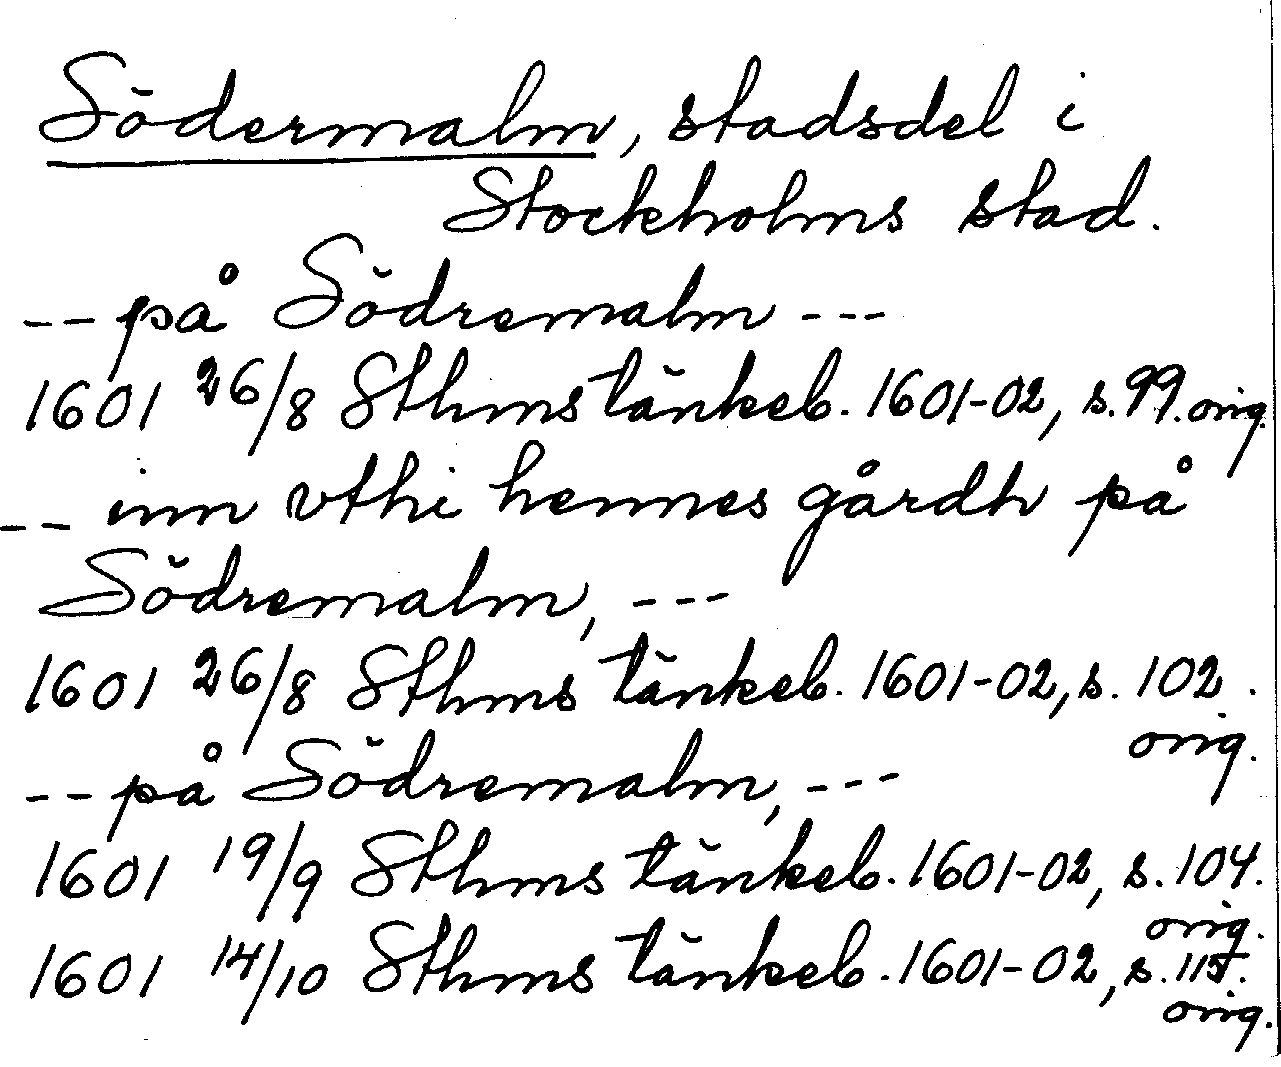 Södermalm, stadsdel i
Stockholms stad.
-- på Södremalm ---
1601 26/8 Sthms tänkeb. 1601-02, s. 99. orig.
-- inn vthi hennes gårdh på
Södremalm, ---
1601 26/8 Sthms tänkeb. 1601-02, s. 102.
orig.
-- på Södremalm, ---
1601 19/9 Sthms tänkeb. 1601-02, s. 104.
orig.
1601 14/10 Sthms tänkeb. 1601-02, s. 115.
orig.